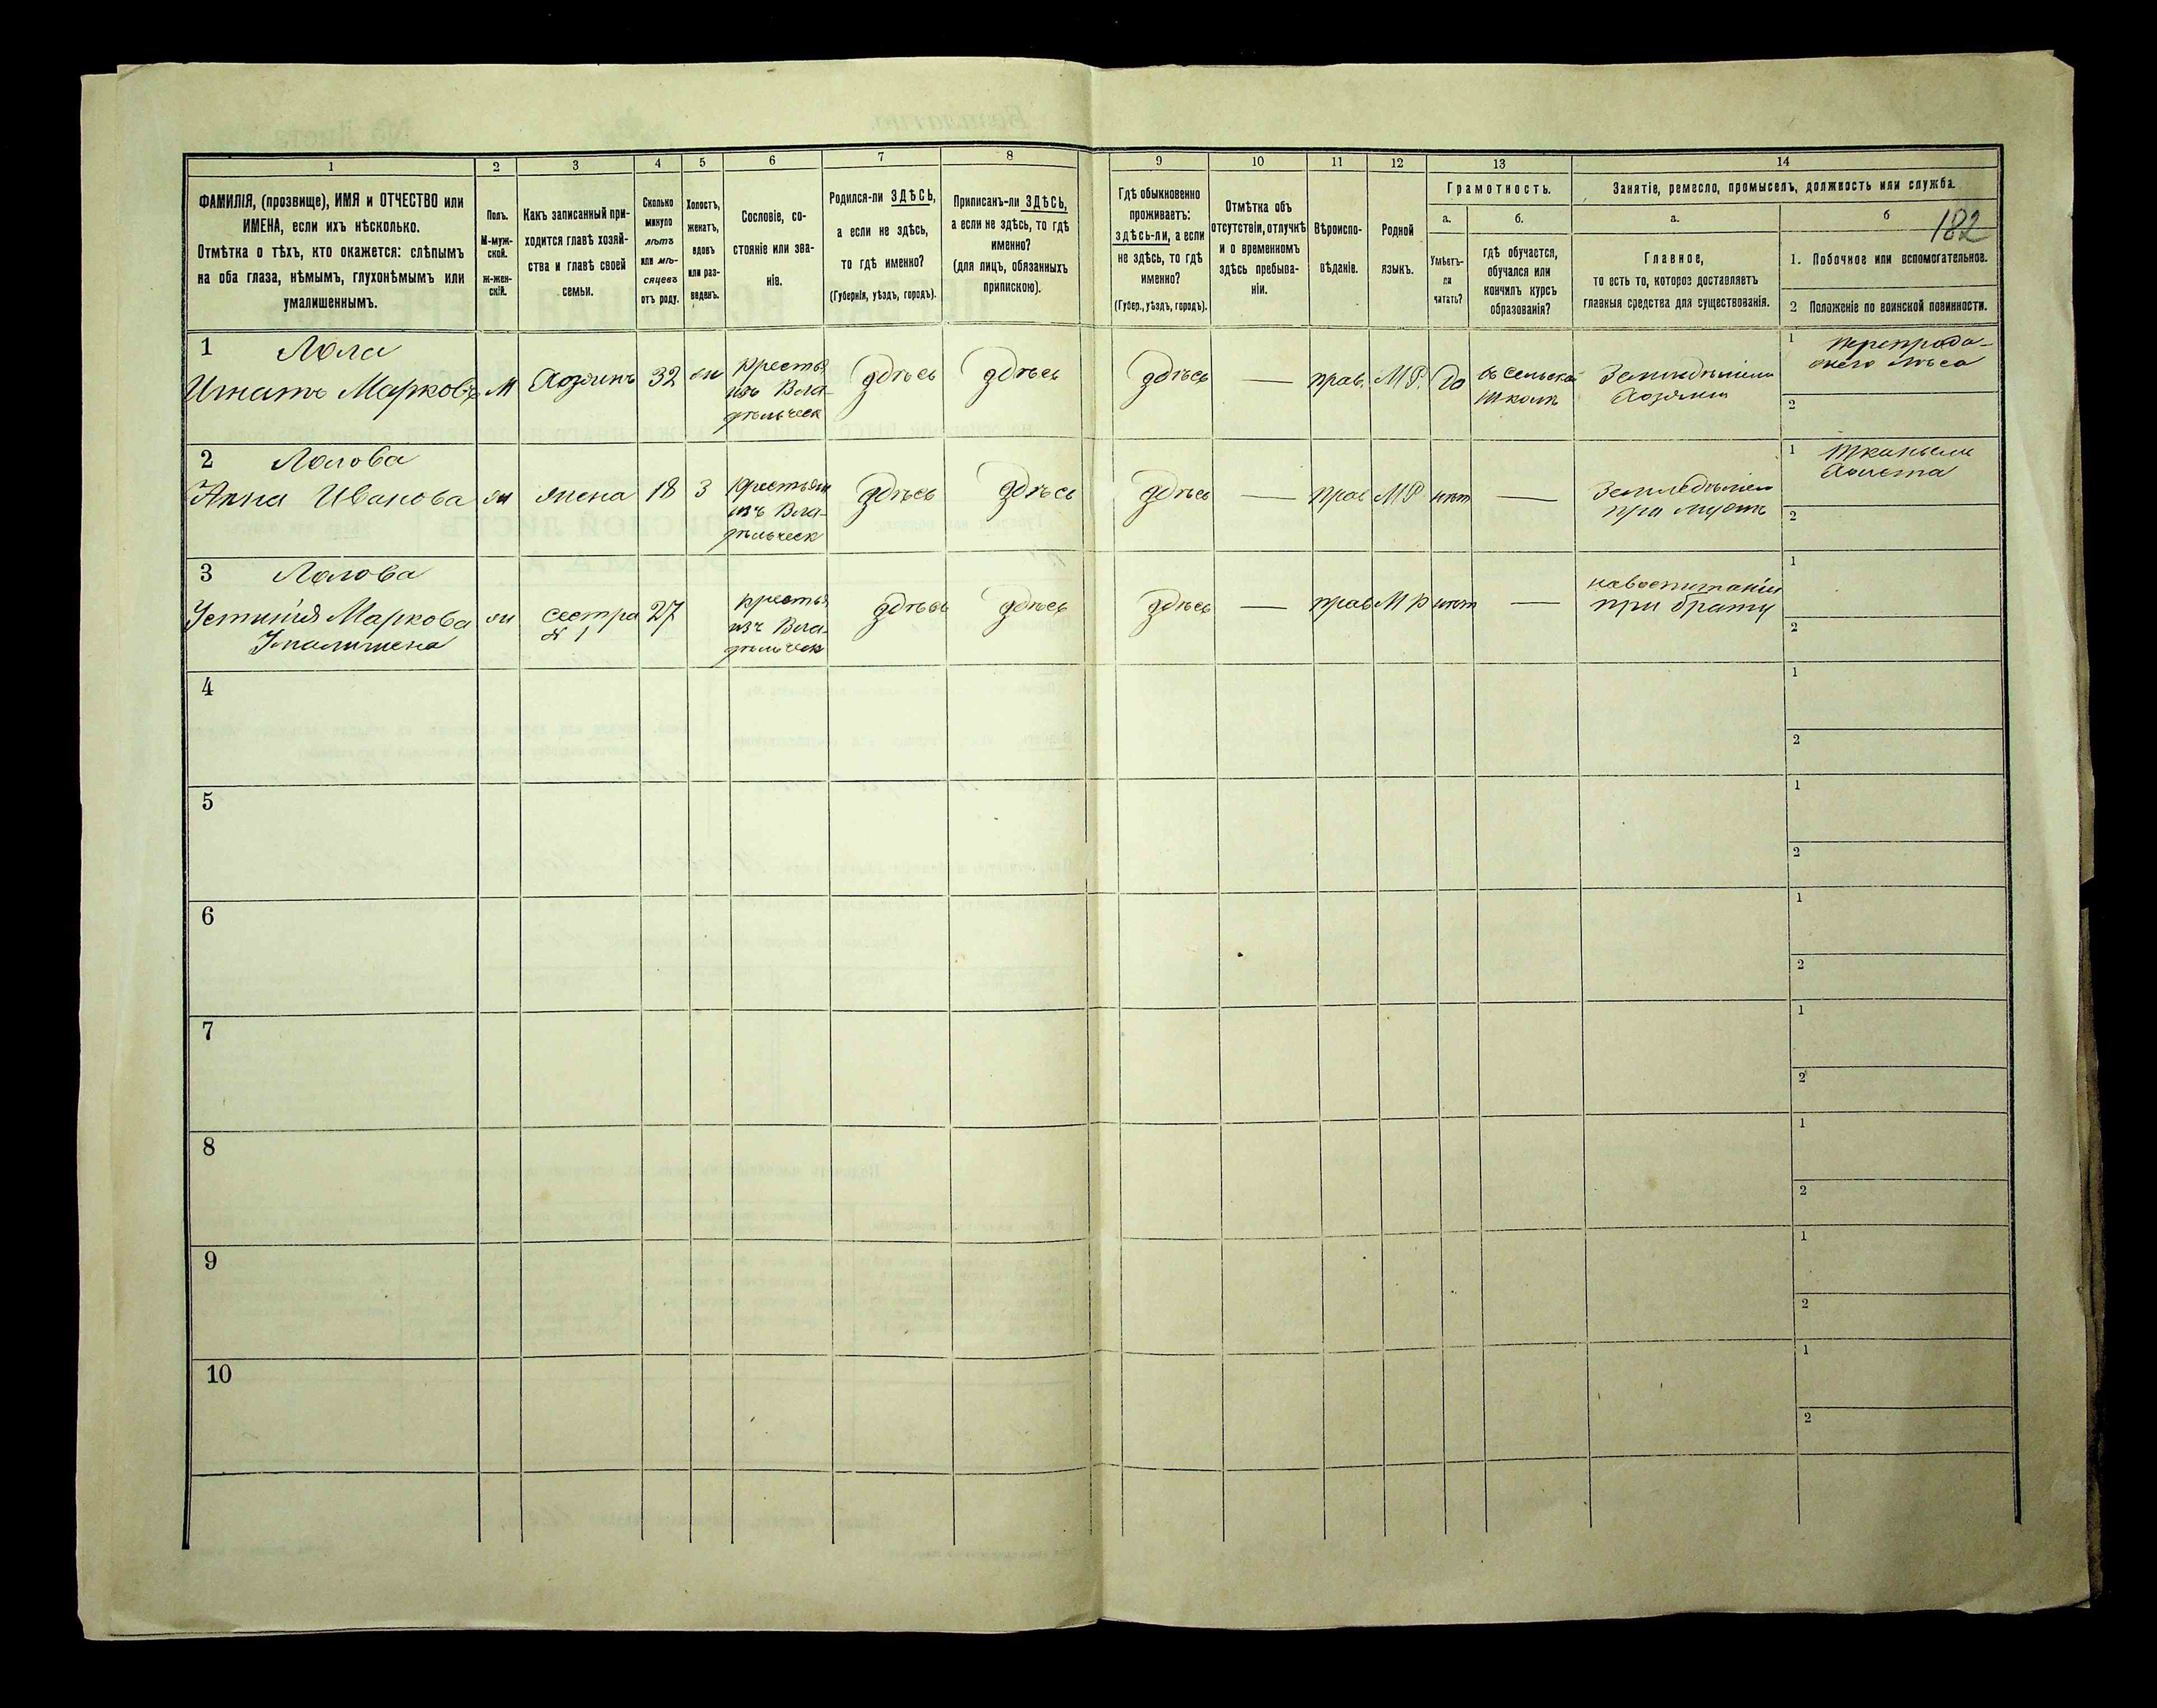 1
2
3
4
5
6
7
8
9
10
11
12
13
14
ФАМИЛІЯ, (прозвище), ИМЯ и ОТЧЕСТВО или
ИМЕНА, если ихъ нѣсколько.
Отмѣтка о тѣхъ, кто окажется: слѣпымъ
на оба глаза, нѣмымъ, глухонѣмымъ или
умалишеннымъ.
Полъ.
М-муж-
ской.
ж-жен-
скій.
Какъ записанный при-
ходится главѣ хозяй-
ства и главѣ своей
семьи.
Сколько
минуло
лѣтъ
или мѣ-
сяцевъ
отъ роду.
Холостъ,
женатъ,
вдовъ
или раз-
веденъ.
Сословіе, со-
стояніе или зва-
ніе.
Родился-ли ЗДѢСЬ,
а если не здѣсь,
то гдѣ именно?
(Губернія, уѣздъ, городъ).
Приписанъ-ли ЗДѢСЬ,
а если не здѣсь, то гдѣ
именно?
(для лицъ, обязанныхъ
припискою).
Гдѣ обыкновенно
проживаетъ:
здѣсь-ли, а если
не здѣсь, то гдѣ
именно?
(Губер., уѣздъ, городъ).
Отмѣтка объ
отсутствіи, отлучкѣ
и о временномъ
здѣсь пребыва-
ніи.
Вѣроиспо-
вѣданіе.
Родной
языкъ.
Грамотность.
а.
Умѣетъ-
ли
читать?
б.
гдѣ обучается,
обучался или
кончилъ курсъ
образованія?
Занятіе, ремесло, промыселъ, должность или служба.
а.
Главное,
то есть то, которое доставляетъ
главныя средства для существованія.
б
182
1. Побочное или вспомогательное.
2 Положеніе по воинской повинности.
1 Лола
Игнатъ Марковъ
М
Хозяинъ
32
ж
крестья
изъ Вла-
дѣльческ
здѣсь
здѣсь
здѣсь
—
прав.
М Р.
Да
въ сельской
школѣ
Земледѣліемъ
Хозяинъ
1
лѣса
2
2 Лолова
Анна Иванова
ж
жена
18
З
Крестьян
изъ Вла-
дѣльческ
здѣсь
здѣсь
здѣсь
—
прав
М Р
нѣт
—
Земледѣліем
при мужѣ
1 тканьем
Холста
2
3 Лолова
Устинія Маркова
Умалишена
ж
сестра
№ 1
27
крестья
изъ Вла-
дѣльческ
здѣсь
здѣсь
здѣсь
—
прав
М Р
нѣт
—
на воспитаніи
при брату
1
2
4
1
2
5
1
2
6
1
2
7
1
2
8
1
2
9
1
2
10
1
2